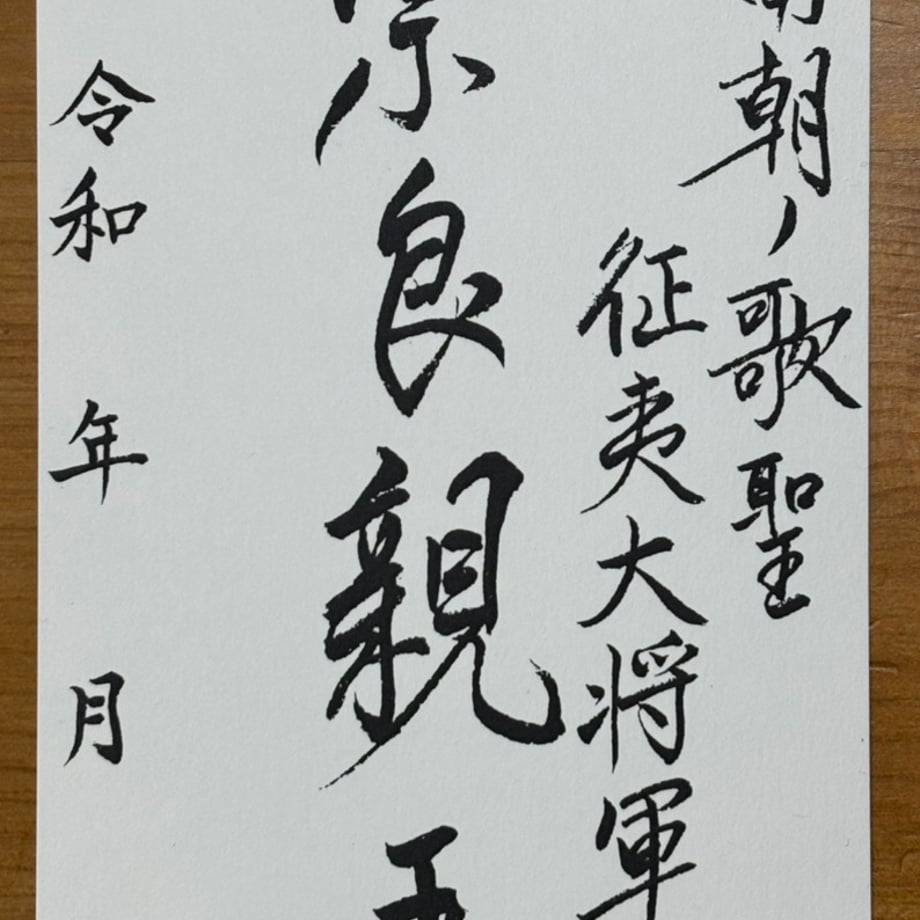 南朝ノ歌聖
征夷大将軍
宗良親王
令和 年 月